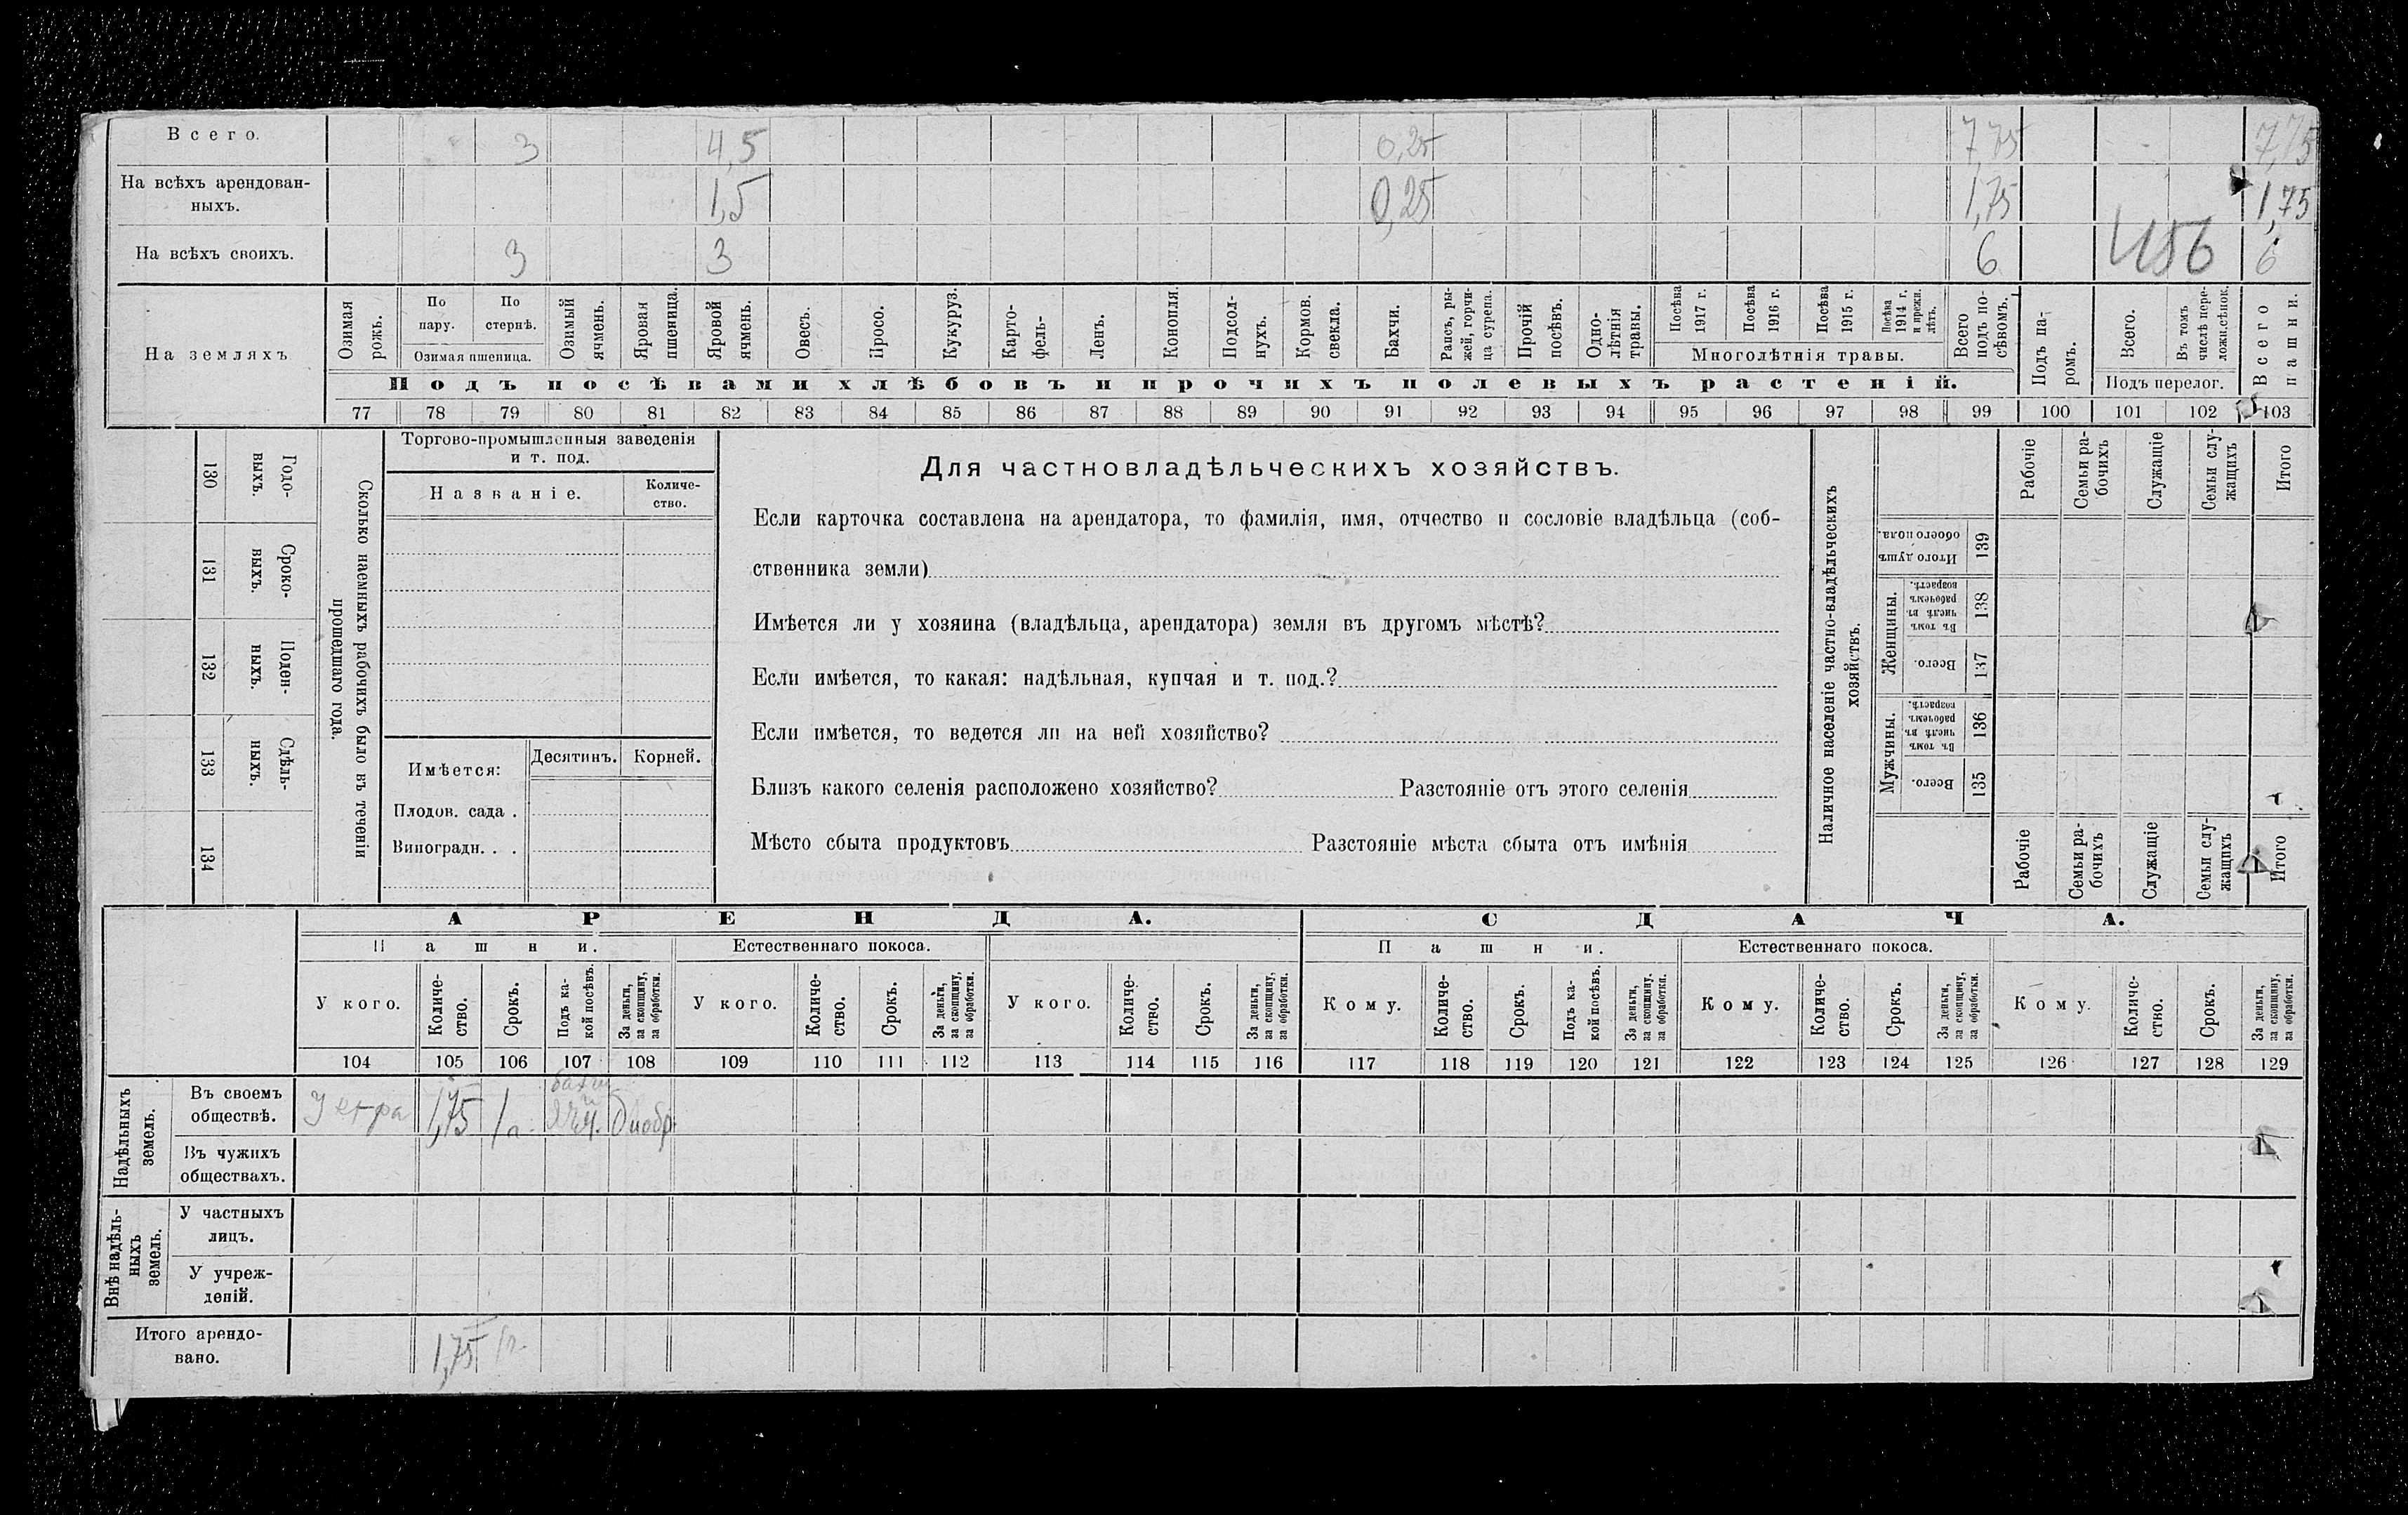 Всего. 3 4,5 0,25 7,75 7,75
На всѣхъ арендован-
ныхъ. 1,5 0,25 1,75 1,75
На всѣхъ своихъ. 3 3 6 456 6
На земляхъ
Озимая рожь.
По пару.
По стернѣ.
Озимая пшеница.
Озимый ячмень.
Яровая пшеница.
Яровой ячмень.
Овесъ.
Просо.
Кукуруз.
Карто-
фель-
Ленъ.
Конопля.
Подсол-
нухъ.
Кормов. свекла.
Бахчи.
Рапсъ, ры-
жей, горчи-
ца сурепа.
Прочій посѣвъ.
Одно-
лѣтнія травы.
Посѣва 1917 г.
Посѣва 1916 г.
Посѣва 1915 г.
Посѣва 1914 г. и прежн. лѣтъ.
Многолѣтнія травы.
Всего подъ по-
сѣвомъ.
Подъ па-
ромъ.
Всего.
Въ томъ числѣ пере-
ложн.сѣнок.
Подъ перелог.
Всего пашни.
Подъ посѣвами хлѣбовъ и прочихъ полевыхъ растеній.
77 78 79 80 81 82 83 84 85 86 87 88 89 90 91 92 93 94 95 96 97 98 99 100 101 102 103
130 Годо-
выхъ.
131 Сроко-
выхъ.
132 Поден-
ныхъ.
133 Сдѣль-
ныхъ.
134
Сколько наемныхъ рабочихъ было въ теченіи
прошедшаго года.
Торгово-промышленныя заведенія
и т. под.
Названіе.
Количе-
ство.
Имѣется: Десятинъ. Корней.
Плодов. сада .
Виноградн. . .
Для частновладѣльческихъ хозяйствъ.
Если карточка составлена на арендатора, то фамилія, имя, отчество и сословіе владѣльца (соб-
ственника земли)
Имѣется ли у хозяина (владѣльца, арендатора) земля въ другомъ мѣстѣ?
Если имѣется, то какая: надѣльная, купчая и т. под.?
Если имѣется, то ведется ли на ней хозяйство?
Близъ какого селенія расположено хозяйство? Разстояніе отъ этого селенія
Мѣсто сбыта продуктовъ Разстояніе мѣста сбыта отъ имѣнія
Наличное населеніе частно-владѣльческихъ
хозяйствъ.
Рабочіе
Семьи ра-
бочихъ
Служащіе
Семьи слу-
жащихъ
Итого
Итого душъ обоего пола. 139
Женщины.
Въ томъ числѣ въ рабочемъ возрастѣ. 138
Всего. 137
Мужчины.
Въ томъ числѣ въ рабочемъ возрастѣ. 136
Всего. 135
Рабочіе
Семьи ра-
бочихъ
Служащіе
Семьи слу-
жащихъ
Итого
АРЕНДА. СДАЧА.
Пашни. Естественнаго покоса. Пашни. Естественнаго покоса.
У кого.
Количе-
ство.
Срокъ.
Подъ ка-
кой посѣвъ.
За деньги, за скопщину, за обработки.
У кого.
Количе-
ство.
Срокъ.
За деньги, за скопщину, за обработки.
У кого.
Количе-
ство.
Срокъ.
За деньги, за скопщину, за обработки.
Кому.
Количе-
ство.
Срокъ.
Подъ ка-
кой посѣвъ.
За деньги, за скопщину, за обработки.
Кому.
Количе-
ство.
Срокъ.
За деньги, за скопщину, за обработки.
Кому.
Количе-
ство.
Срокъ.
За деньги, за скопщину, за обработки.
104 105 106 107 108 109 110 111 112 113 114 115 116 117 118 119 120 121 122 123 124 125 126 127 128 129
Надѣльныхъ
земель.
Въ своемъ
обществѣ. 1,75 1 г. бахч и ячм.
Въ чужихъ
обществахъ.
Внѣ надѣль-
ныхъ
земель.
У частныхъ
лицъ.
У учреж-
деній.
Итого арендо-
вано. 1,75